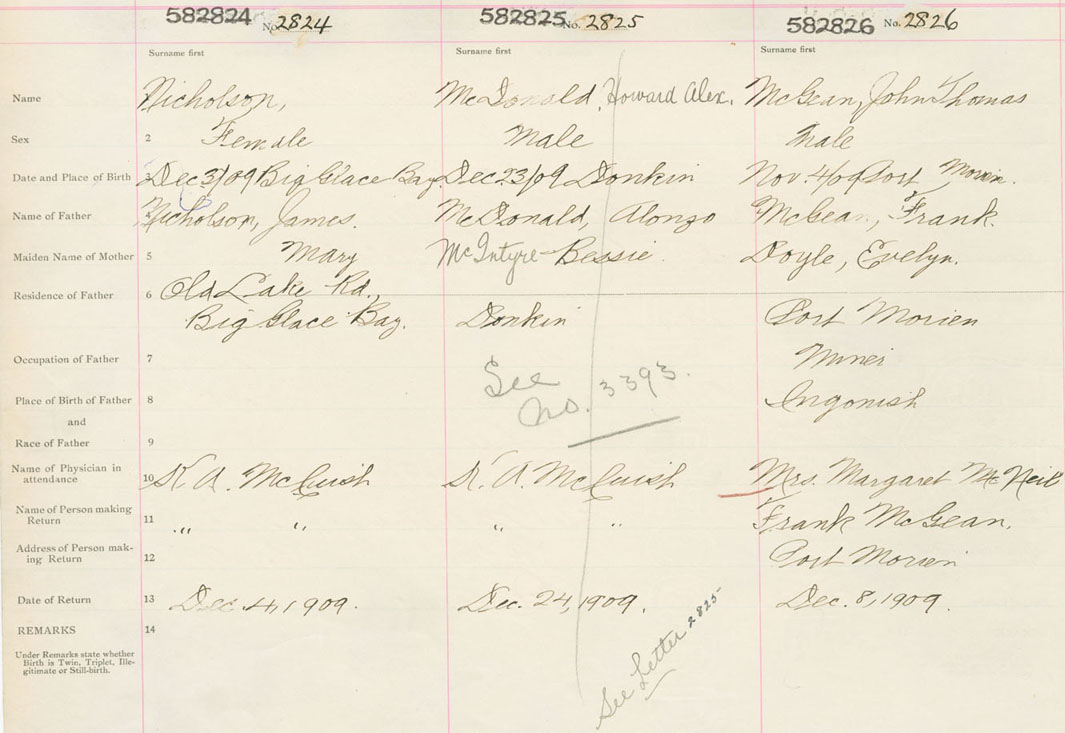 582824 No. 2824 582825 No. 2825 582826 No. 2826
Surname first Surname first Surname first
Name Nicholson, McDonald, Howard Alex. McGean, John Thomas
Sex 2 Female Male Male
Date and Place of Birth 3 Dec 3/09 Big Glace Bay. Dec. 23/09 Donkin Nov. 4/09 Port Morien.
Name of Father 4 Nicholson, James. McDonald, Alonzo McGean, Frank.
Maiden Name of Mother 5 Mary McIntyre Bessie. Doyle, Evelyn.
Residence of Father 6 Old Lake Rd.,
Big Glace Bay. Donkin Port Morien
Occupation of Father 7 Miner
See
Place of Birth of Father 8 No. 3393. Ingonish
and
Race of Father 9
Name of Physician in
attendance 10 K. A. McCuish K. A. McCuish Mrs. Margaret McNeil
Name of Person making
Return 11 " " " " Frank McGean.
Address of Person mak-
ing Return 12 Port Morien
Date of Return 13 Dec. 4, 1909. Dec. 24, 1909. Dec. 8, 1909.
REMARKS 14
Under Remarks state whether
Birth is Twin, Triplet, Ille-
gitimate or Still-birth.
See Letter 2825